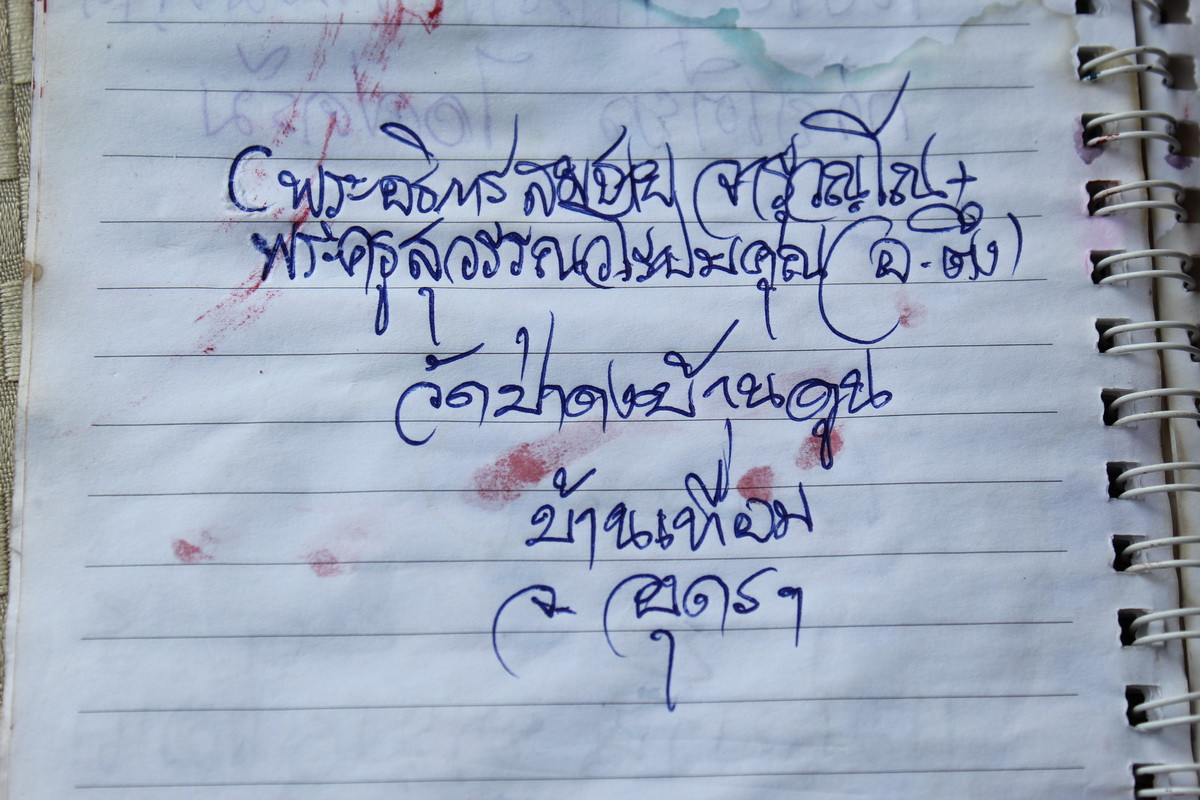 (พระอธิการสมชาย จารุวณฺโณ +
พระครูสุวรรณวโรปมคุณ (อ.ตึ๋ง)
วัดป่าดงบ้านดูน
บ้านเทื่อม
จ. อุดรฯ